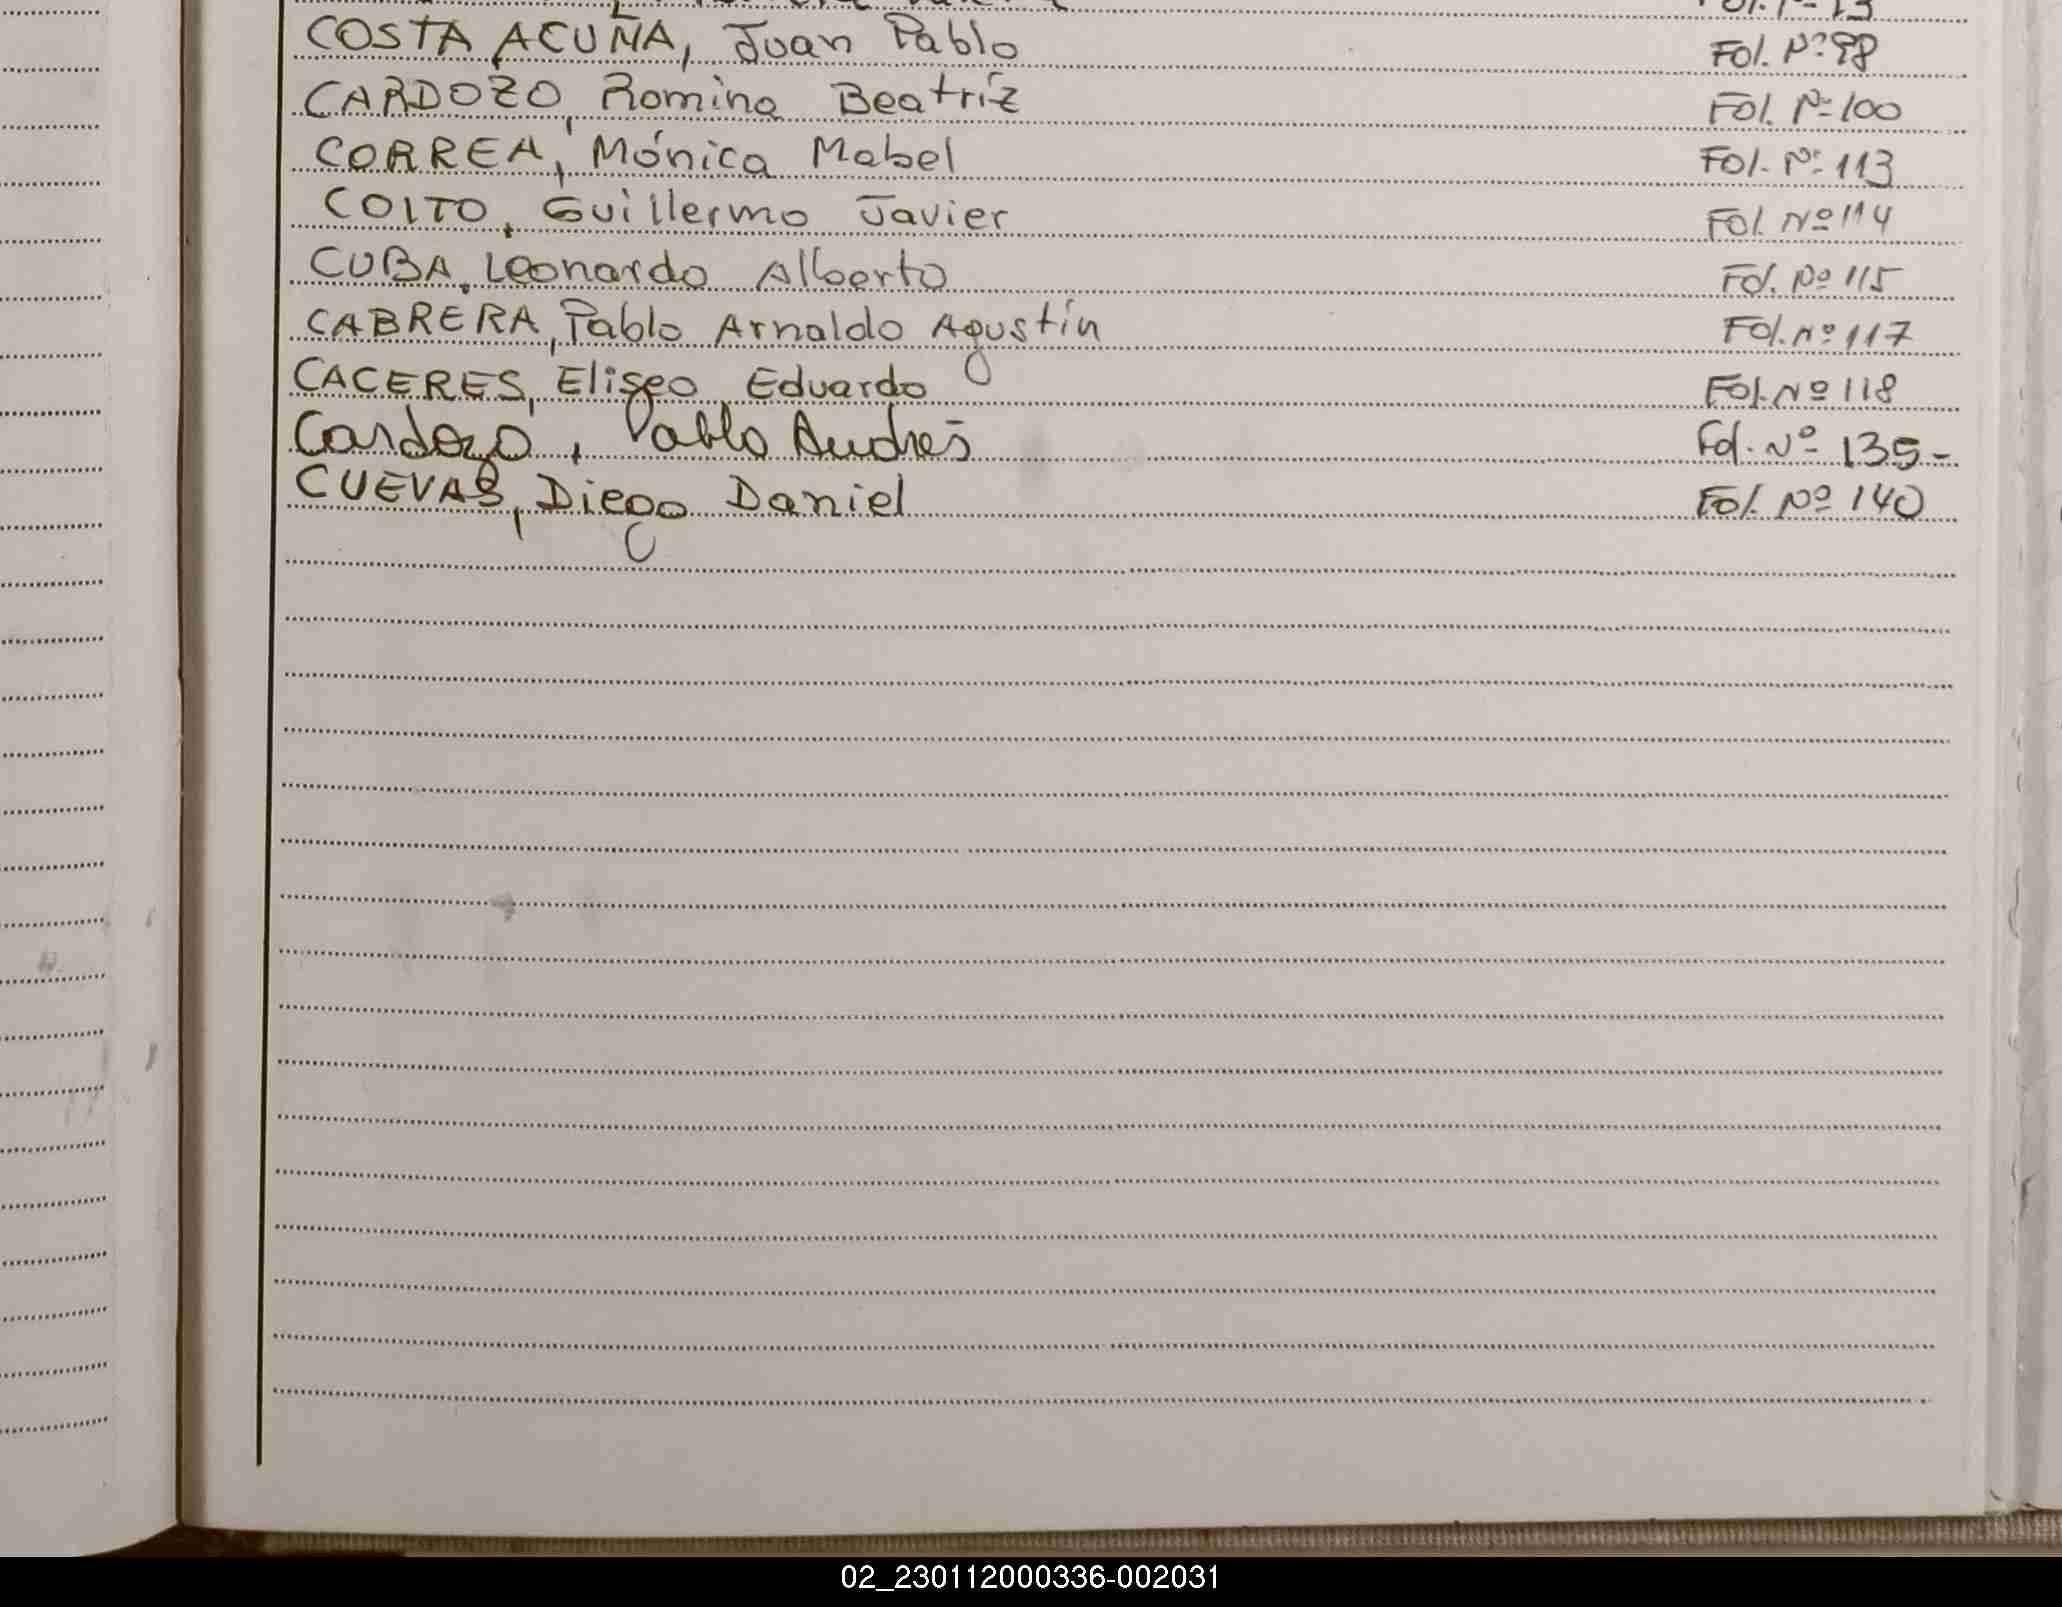 COSTA ACUÑA, Juan Pablo Fol. Nº 98
CARDOZO, Romina Beatríz Fol. Nº 100
CORREA, Mónica Mabel Fol. Nº 113
COITO, Guillermo Javier Fol. Nº 114
CUBA, Leonardo Alberto Fol. Nº 115
CABRERA, Pablo Arnaldo Agustín Fol. Nº 117
CACERES, Eliseo Eduardo Fol. Nº 118
Cardozo, Pablo Andrés Fol. Nº 135-
CUEVAS, Diego Daniel Fol. Nº 140
02_230112000336-002031